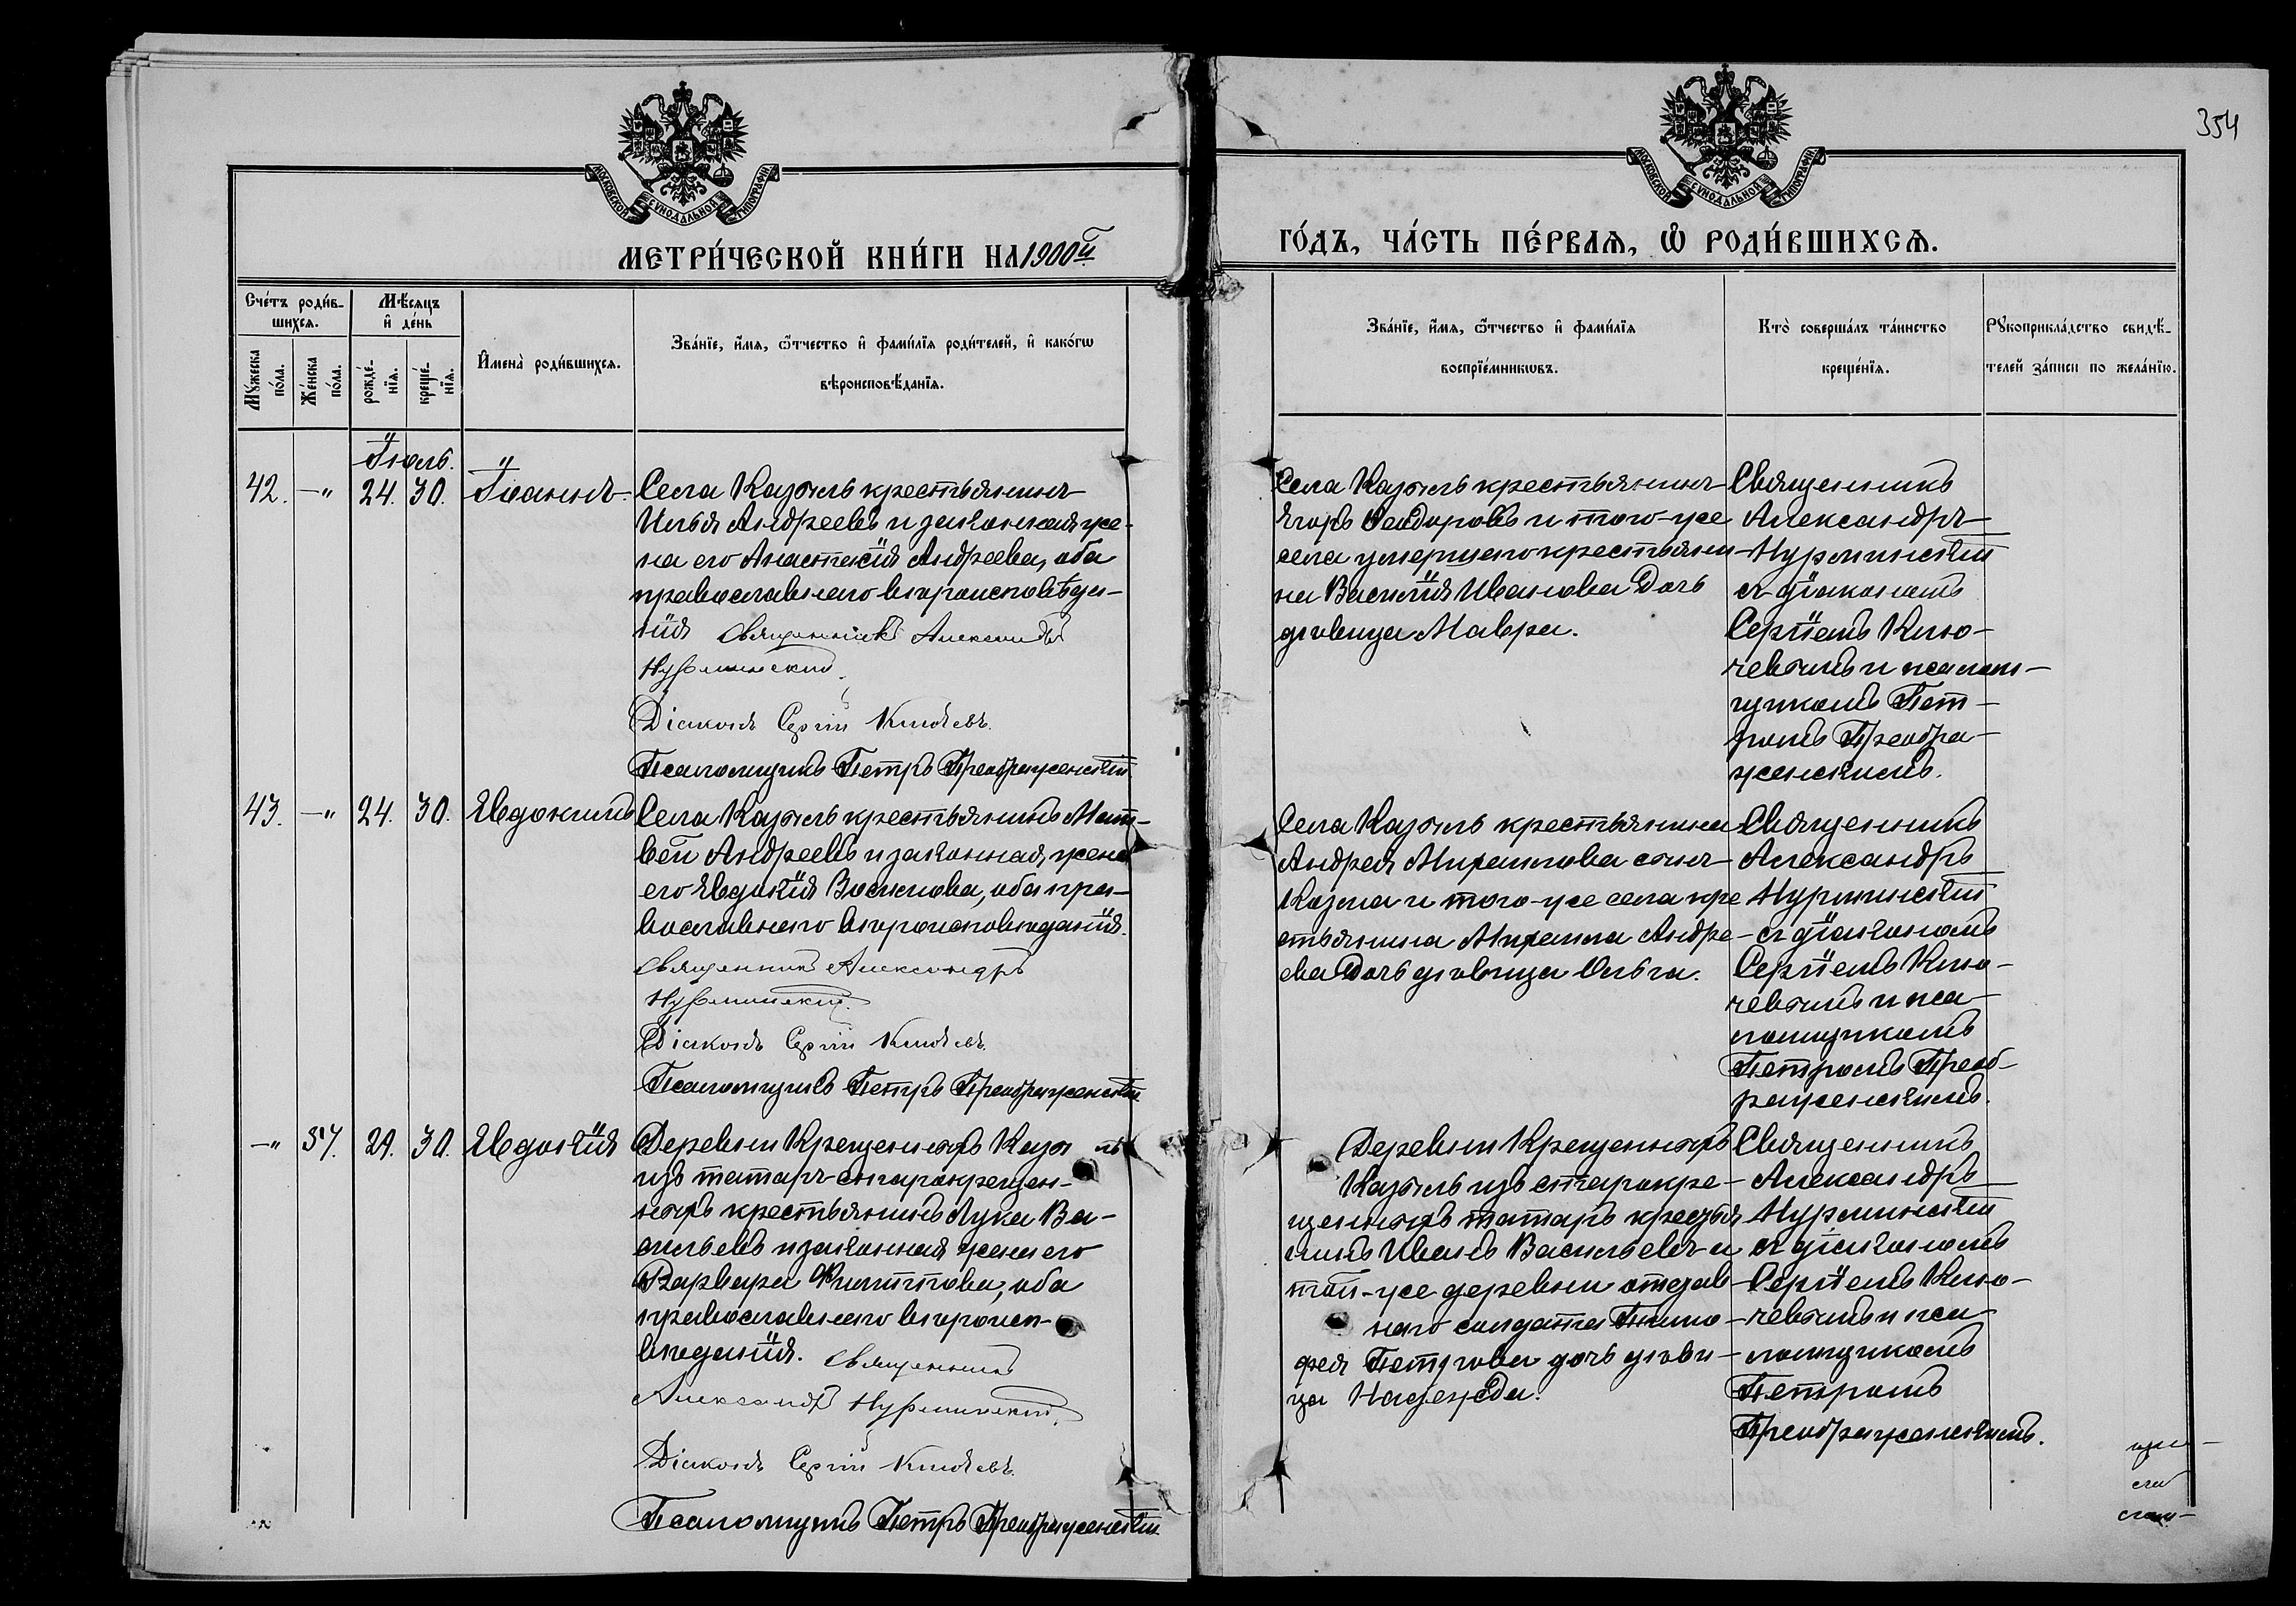 354
МОСКОВСКОЙ СУНОДАЛЬНОЙ ТИПОГРАФІИ
МОСКОВСКОЙ СУНОДАЛЬНОЙ ТИПОГРАФІИ
МЕТРИ́ЧЕСКОЙ КНИ́ГИ НА 1900й
ГО́ДЪ, ЧА́СТЬ ПЕ́РВАЯ, Ѡ҆ РОДИ́ВШИХСЯ.
Сче́тъ роди́в-
шихся.
Мѣ́сяцъ
и҆ де́нь
Мꙋ́жеска
по́ла.
Же́нска
по́ла.
рожде́-
нїя.
креще́-
нїя.
И҆мена̀ роди́вшихся.
Зва́нїе, и҆́мя, ѻ҆́тчество и҆ фами́лїя роди́телей, и҆ како́гѡ
вѣроисповѣ́данїя.
Зва́нїе, и҆́мя, ѻ҆́тчество и҆ фами́лїя
воспрїе́мникѡвъ.
Кто̀ соверша́лъ та́инство
креще́нїя.
Рꙋкоприкла́дство свидѣ́-
телей за́писи по жела́нїю.
Іюль.
42. —" 24. 30. Іоаннъ
Села Казыль крестьянинъ
Илья Андреевъ и законная же-
на его Анастасія Андреева, оба
православнаго вѣроисповѣда-
нія Священникъ Александръ
Нурминскій.
Діаконъ Сергій Ключевъ.
Псаломщикъ Петръ Преображенскій
Села Казыль крестьянинъ
Егоръ Ѳеодоровъ и того-же
села умершаго крестьяни-
на Василія Иванова дочь
дѣвица Мавра.
Священникъ
Александръ
Нурминскій
съ діакономъ
Сергіемъ Клю-
чевымъ и псалом-
щикомъ Пет-
ромъ Преобра-
женскимъ.
43. —" 24. 30. Евдокимъ
Села Казыль крестьянинъ Мат-
вей Андреевъ и законная жена
его Евдокія Васильева, оба пра-
вославнаго вѣроисповѣданія.
Священникъ Александръ
Нурминскій.
Діаконъ Сергій Ключевъ.
Псаломщикъ Петръ Преображенскій
Села Казыль крестьянина
Андрея Михаилова сынъ
Козма и того-же села кре
стьянина Михаила Андре-
ева дочь дѣвица Ольга.
Священникъ
Александръ
Нурминскій
съ діакономъ
Сергіемъ Клю-
чевымъ и пса-
ломщикомъ
Петромъ Преоб-
раженскимъ.
—" 57. 29. 30. Евдокія
Деревни Крещенныхъ Казыль
изъ татаръ старокрещен-
ныхъ крестьянинъ Лука Ва-
сильевъ и законная жена его
Варвара Филиппова, оба
православнаго вѣроисп-
вѣданія. Священникъ
Александръ Нурминскій.
Діаконъ Сергій Ключевъ.
Псаломщикъ Петръ Преображенскій
Деревни Крещенныхъ
Казыль изъ старокре-
щенныхъ татаръ крестья
нинъ Иванъ Васильевъ и
той-же деревни отстав-
наго солдата Тимо-
фея Петрова дочь дѣви-
ца Надежда.
Священникъ
Александръ
Нурминскій
съ діакономъ
Сергіемъ Клю-
чевымъ и пса-
ломщикомъ
Петромъ
Преображенскимъ.